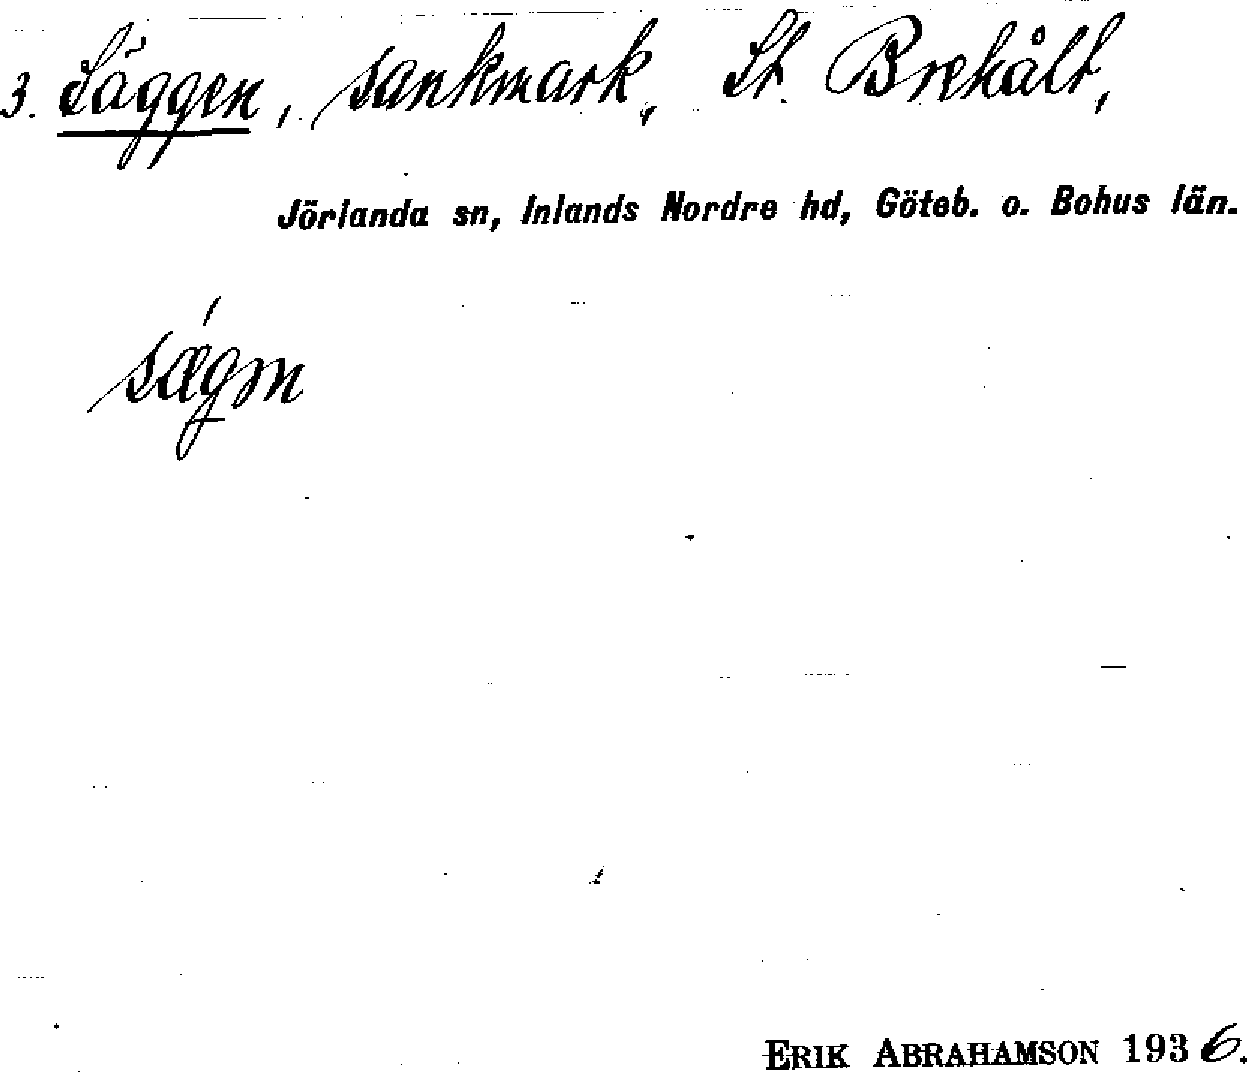 3. Säggen, sankmark, St. Brehålt,
Jörlanda sn, Inlands Nordre hd, Göteb. o. Bohus län.
sægm
ERIK ABRAHAMSON 1936.